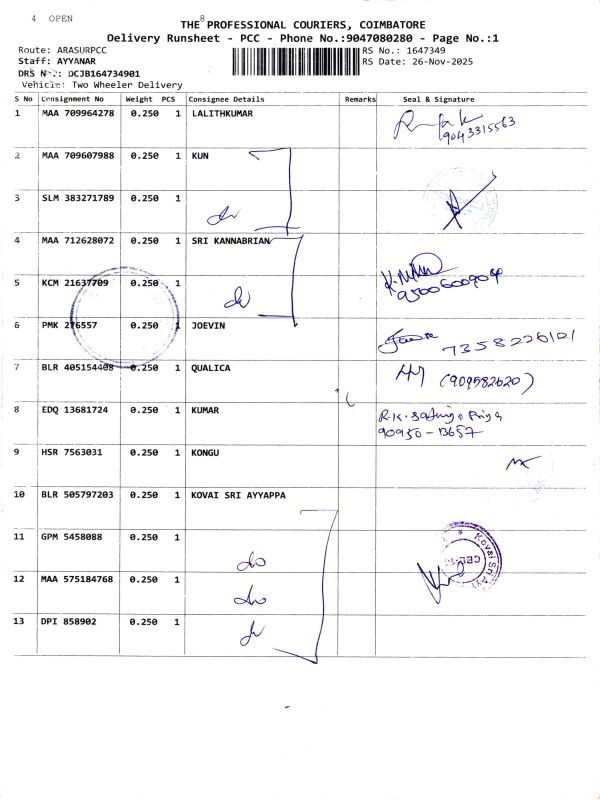 4 OPEN
8
THE PROFESSIONAL COURIERS, COIMBATORE
Delivery Runsheet - PCC - Phone No.:9047080280 - Page No.:1
Route: ARASURPCC
RS No.: 1647349
Staff: AYYANAR
RS Date: 26-Nov-2025
DRS No: DCJB164734901
Vehicle: Two Wheeler Delivery
S No Consignment No Weight PCS Consignee Details Remarks Seal & Signature
1 MAA 709964278 0.250 1 LALITHKUMAR
9043315563
2 MAA 709607988 0.250 1 KUN
3 SLM 383271789 0.250 1
do
4 MAA 712628072 0.250 1 SRI KANNABRIAN
5 KCM 21637709 0.250 1
do
9500600904
6 PMK 276557 0.250 1 JOEVIN
7358226101
7 BLR 405154408 0.250 1 QUALICA
(909582620)
8 EDQ 13681724 0.250 1 KUMAR
R.K.
90950-13657
9 HSR 7563031 0.250 1 KONGU
10 BLR 505797203 0.250 1 KOVAI SRI AYYAPPA
11 GPM 5458088 0.250 1
do
Kovai Sri
12 MAA 575184768 0.250 1
do
13 DPI 858902 0.250 1
do